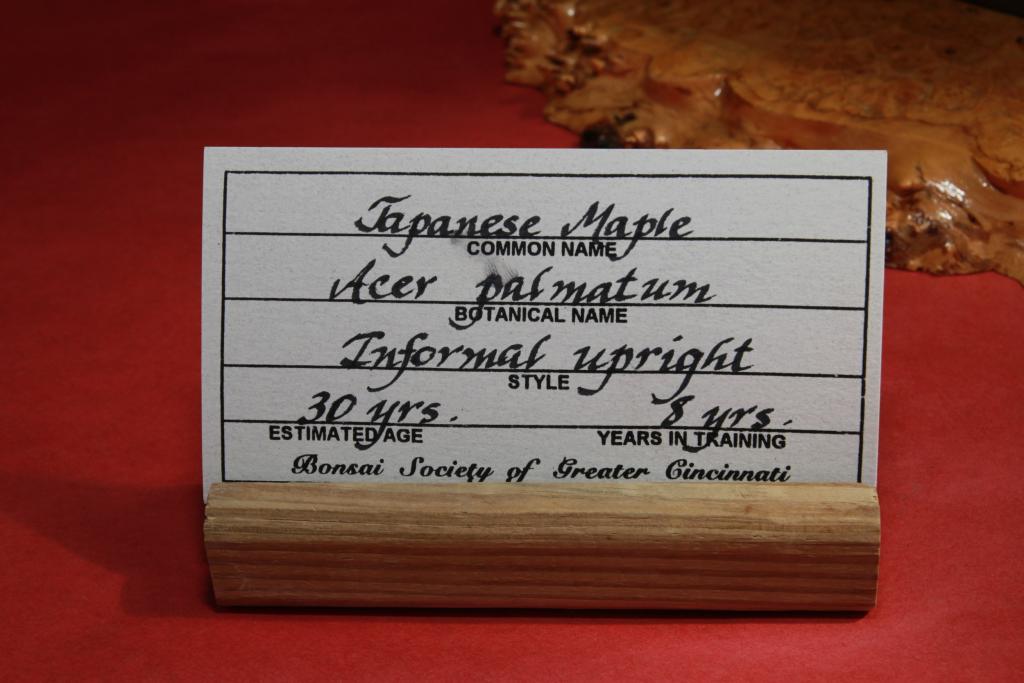 Japanese Maple
COMMON NAME
Acer palmatum
BOTANICAL NAME
Informal upright
STYLE
30 yrs. 8 yrs.
ESTIMATED AGE YEARS IN TRAINING
Bonsai Society of Greater Cincinnati